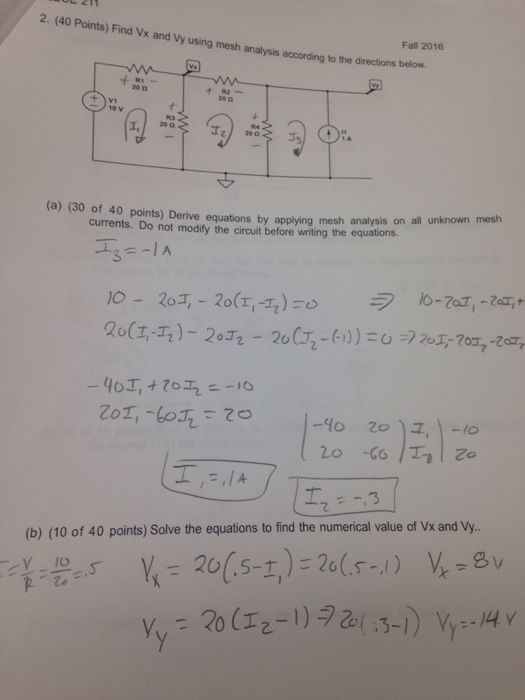 Fall 2016
2. (40 Points) Find Vx and Vy using mesh analysis according to the directions below.
Vx
Vy
+ R1 -
20 Ω
+ R2 -
20 Ω
V1
10 V
I₁
+
R3
20 Ω
-
I₂
+
R4
20 Ω
-
I₃
I1
1A
(a) (30 of 40 points) Derive equations by applying mesh analysis on all unknown mesh
currents. Do not modify the circuit before writing the equations.
I₃ = -1A
10 - 20I₁ - 20(I₁-I₂) = 0 ⇒ 10-20I₁-20I₁+
20(I₁-I₂) - 20I₂ - 20(I₂-(-1)) = 0 ⇒ 20I₁-20I₂-20I₂
-40I₁ + 20I₂ = -10
20I₁ - 60I₂ = 20
-40 20 | I₁ | -10
20 -60 | I₂ | 20
I₁ = .1A
I₂ = -.3
(b) (10 of 40 points) Solve the equations to find the numerical value of Vx and Vy..
I = V/R = 10/20 = .5 Vx = 20(.5-I₁) = 20(.5-.1) Vx = 8v
Vy = 20(I₂-1) ⇒ 20(.3-1) Vy = -14 v